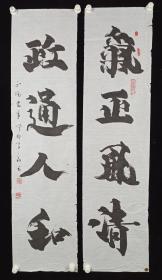 氣正風清
政通人和